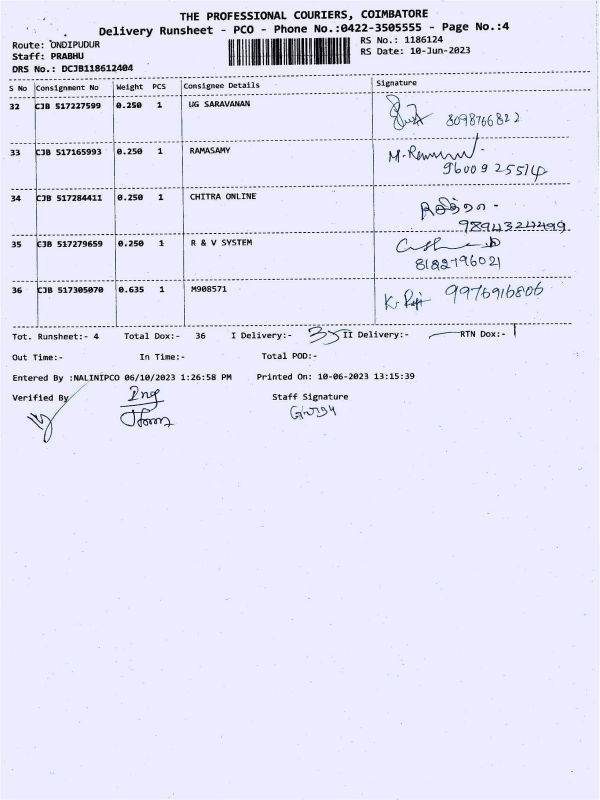 THE PROFESSIONAL COURIERS, COIMBATORE
Delivery Runsheet - PCO - Phone No.:0422-3505555 - Page No.:4
Route: ONDIPUDUR RS No.: 1186124
Staff: PRABHU RS Date: 10-Jun-2023
DRS No.: DCJB118612404
S No Consignment No Weight PCS Consignee Details Signature
32 CJB 517227599 0.250 1 UG SARAVANAN 8098766822
33 CJB 517165993 0.250 1 RAMASAMY
9600925514
34 CJB 517284411 0.250 1 CHITRA ONLINE
35 CJB 517279659 0.250 1 R & V SYSTEM
8122796021
36 CJB 517305070 0.635 1 M908571 9976916806
Tot. Runsheet:- 4 Total Dox:- 36 I Delivery:- 35 II Delivery:- RTN Dox:- 1
Out Time:- In Time:- Total POD:-
Entered By :NALINIPCO 06/10/2023 1:26:58 PM Printed On: 10-06-2023 13:15:39
Verified By Staff Signature